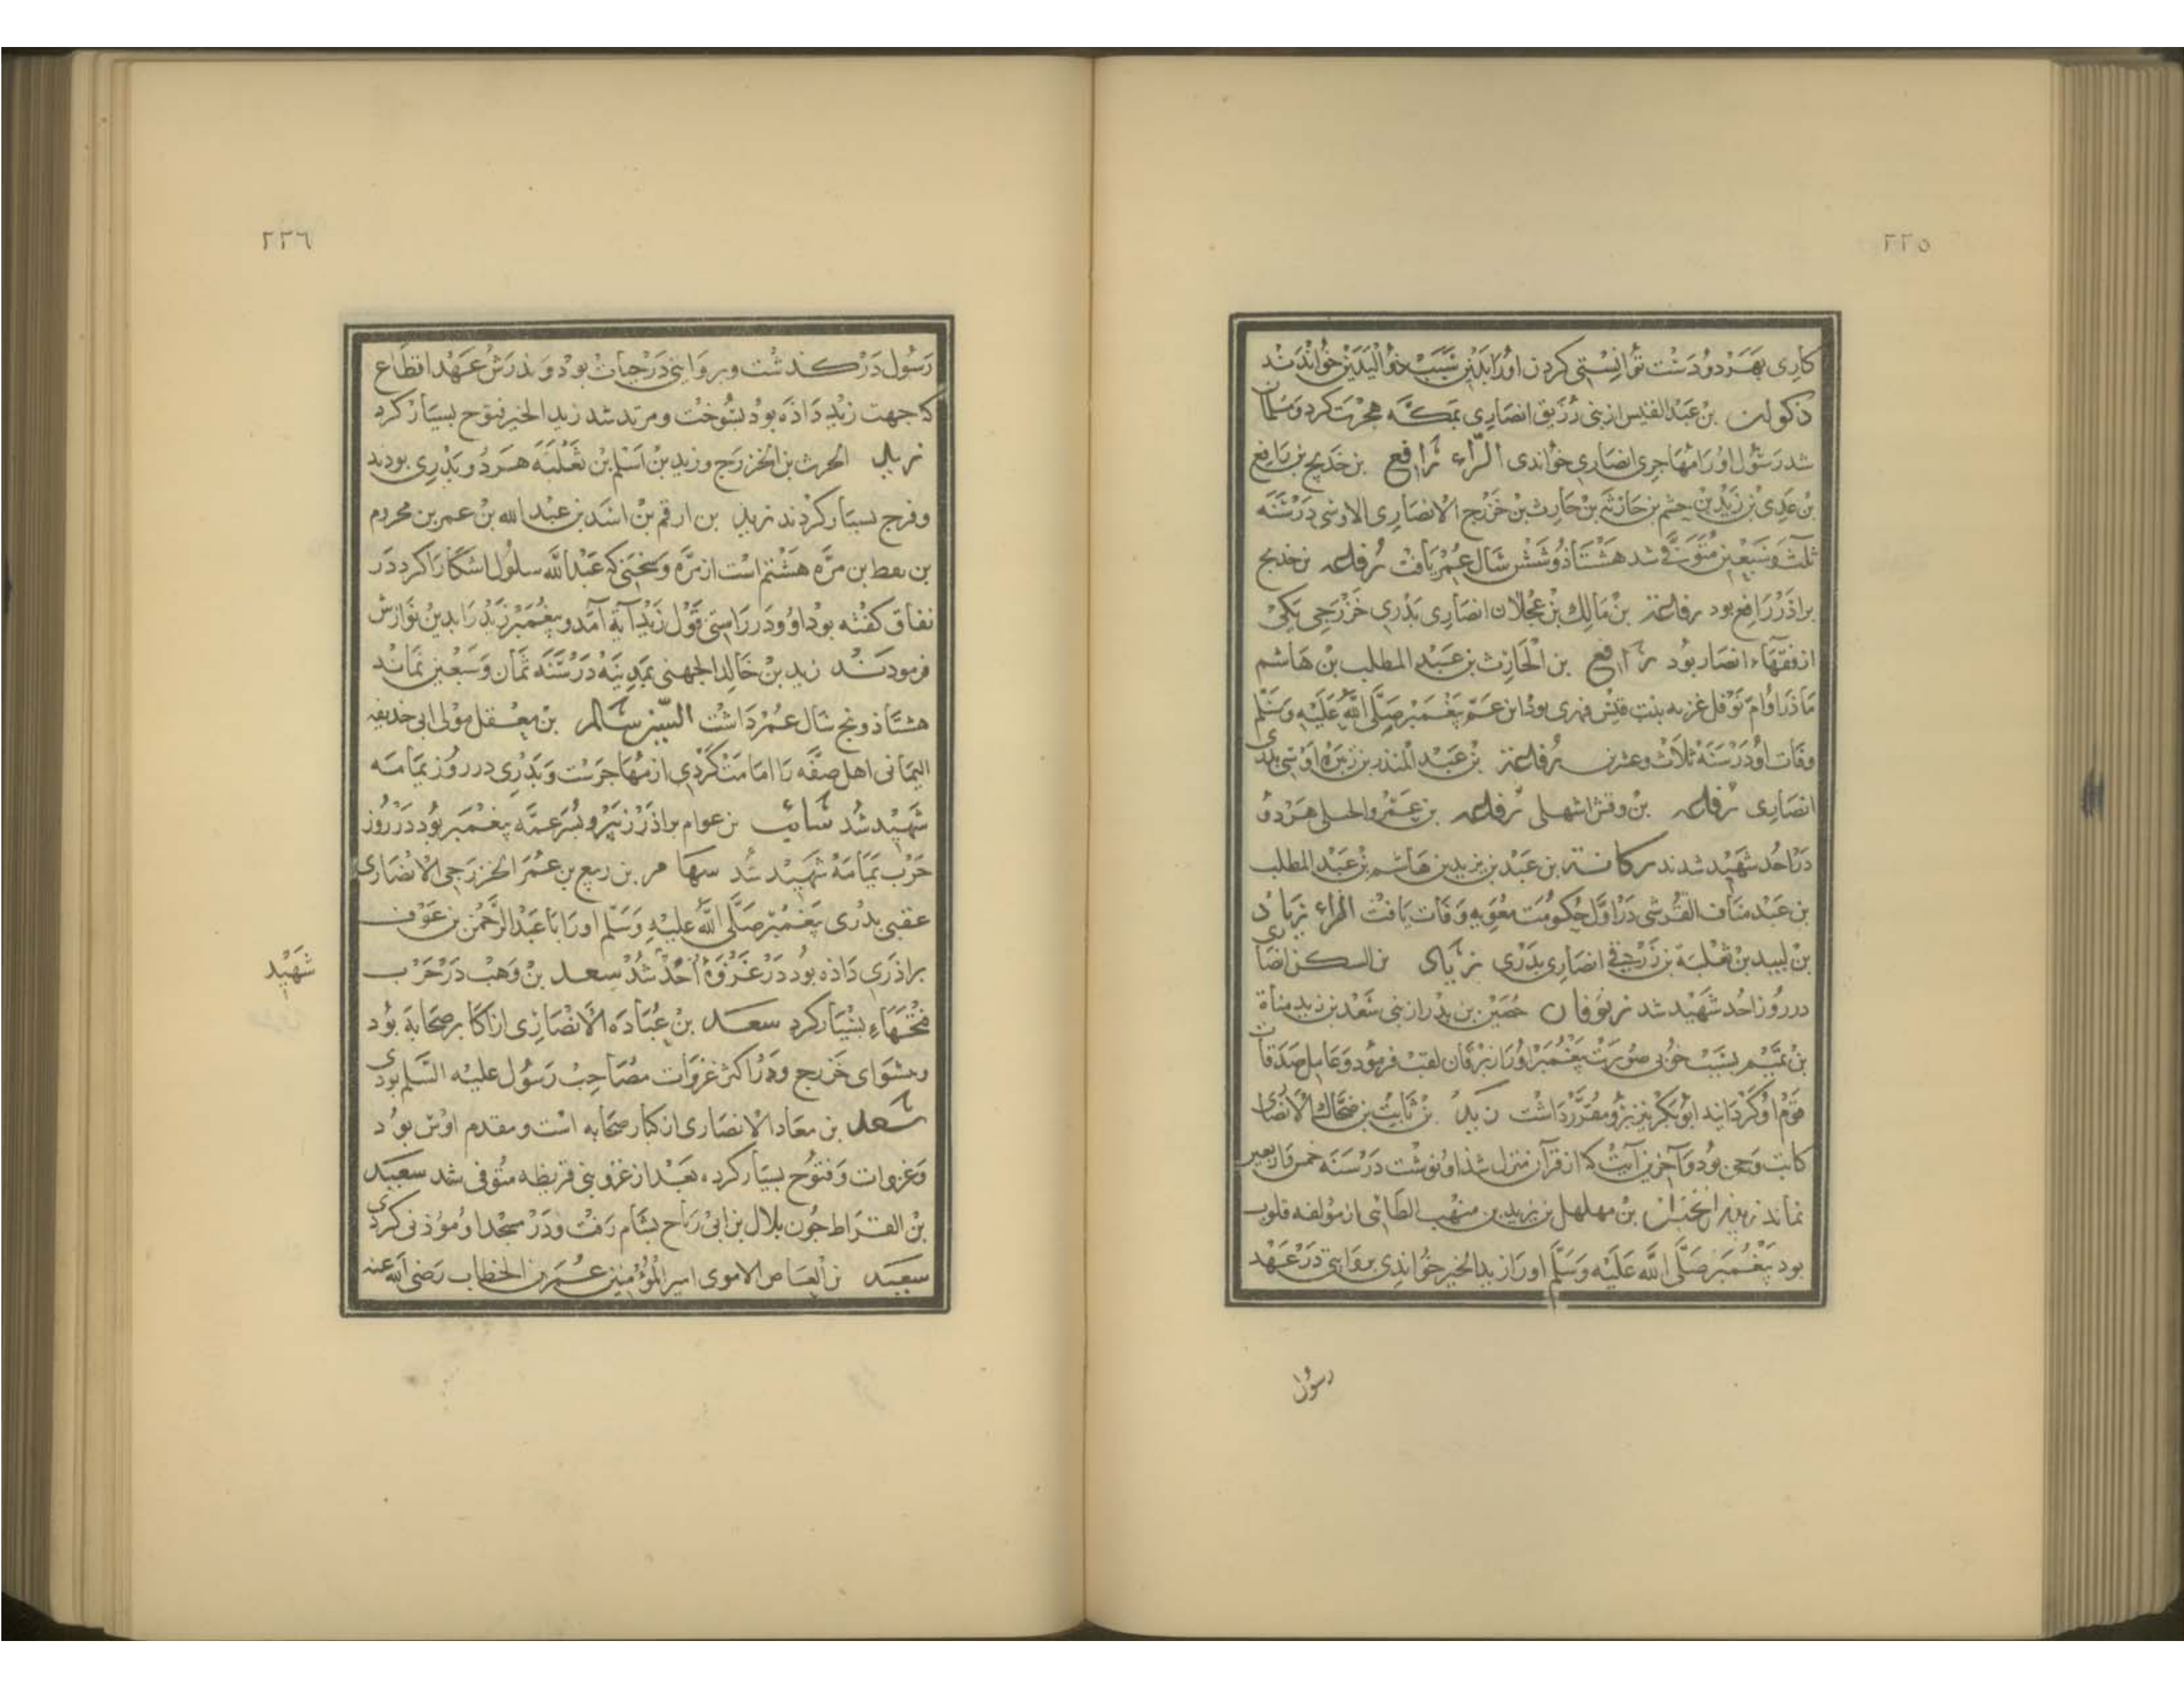 ٢٢٥
كاری بهر دو دست توانستی کردن او را بدین سبب ذو الیدین خواندند
ذکوان بن عبد القیس از بنی زریق انصاری بمکه هجرت کرد و مسلمان
شد رسول او را مهاجری انصاری خواندی الرّاء رافع بن خدیج بن رافع
بن عدی بن زید بن جشم بن حارثه بن حارث بن خزرج الانصاری الاوسی در سنه
ثلث و سبعین متوفی شد هشتاذ و شش سال عمر یافت رفاعه بن خدیج
براذر رافع بود رفاعة بن مالك بن عجلان انصاری بدری خزرجی یکی
از فقهاء انصار بود رافع بن الحارث بن عبد المطلب بن هاشم
ماذر او ام نوفل غزیه بنت قیس فهری بوذ ابن عم پیغمبر صلّی الله علیه وسلم
وفات او در سنه ثلاث وعشرین رفاعة بن عبد المنذر بن زنبره اوسی بدری
انصاری رفاعه بن وقش اشهلی رفاعه بن عمرو الحسلی هر دو
در احد شهید شدند ركانة بن عبد بن یزید بن هاشم بن عبد المطلب
بن عبد مناف القرشی در اول حکومت معویه وفات یافت الزاء زیاد
بن لبید بن ثعلبة بن زریق انصاری بدری زیاد بن السکن انصاری
در روز احد شهید شد زبرقان حصین بن بدر از بنی سعد بن زید مناة
بن تمیم بسبب خوبی صورت پیغمبر او را زبرقان لقب فرمود و عامل صدقات
قوم او گردانید ابو بکر نیز برو مقرّر داشت زید بن ثابت بن ضحاك الانصاری
کاتب وحی بود و آخرین آیت که از قرآن منزل شذ او نوشت در سنه خمس و اربعین
نماند زید الخیر بن مهلهل بن زید بن منهب الطائی از مؤلفه قلوب
بود پیغمبر صلّی الله علیه وسلّم او را زید الخیر خواندی بروایتی در عهد
رسول
٢٢٦
رسول در گذشت و بروایتی در حیات بود و پذرش عهد اقطاع
که جهت زید داذه بود بسوخت و مرتد شد زید الخیر فتوح بسیار کرد
زید الحرث بن الخزرج و زید بن اسلم بن ثعلبه هر دو بدری بودند
و فرج بسیار کردند زید بن ارقم بن اسد بن عبد الله بن عمر بن محروم
بن یقظ بن مرّه هشتم است از مرّه و سخنی که عبد الله سلول اشکارا کرد در
نفاق گفته بود او و در راستی قول زید آیة آمد و پیغمبر زید را بدین نوازش
فرمودند زید بن خالد الجهنی بمدینه در سنه ثمان و سبعین نماند
هشتاذ و پنج سال عمر داشت السین سالم بن معقل مولی ابی حذیفه
الیمانی اهل صفّه را امامت کردی از مهاجرست و بدری در روز یمامه
شهید شد سائب بن عوام براذر زبیر و پسر عمّه پیغمبر بود در روز
حرب یمامه شهید شد سهامر بن ربیع بن عمر الخزرجی الانصاری
عقبی بدری پیغمبر صلّی الله علیه وسلّم او را با عبد الرحمن بن عوف
براذری داذه بود در غزوة احد شد سعد بن وهب در حرب
شهید
فتحهاء بسیار کرد سعد بن عباده الانصاری از اکابر صحابه بود
و پیشوای خزرج و در اکثر غزوات مصاحب رسول علیه السلم بودی
سعد بن معاد الانصاری از کبار صحابه است و مقدم اوس بود
و غزوات و فتوح بسیار کرد بعد از غزو بنی قریظه متوفی شد سعید
بن القراط چون بلال بن ابی رباح بشام رفت و در مسجد او مؤذنی کردی
سعید بن العاص الاموی امیر المؤمنین عمر بن الخطاب رضی الله عنه